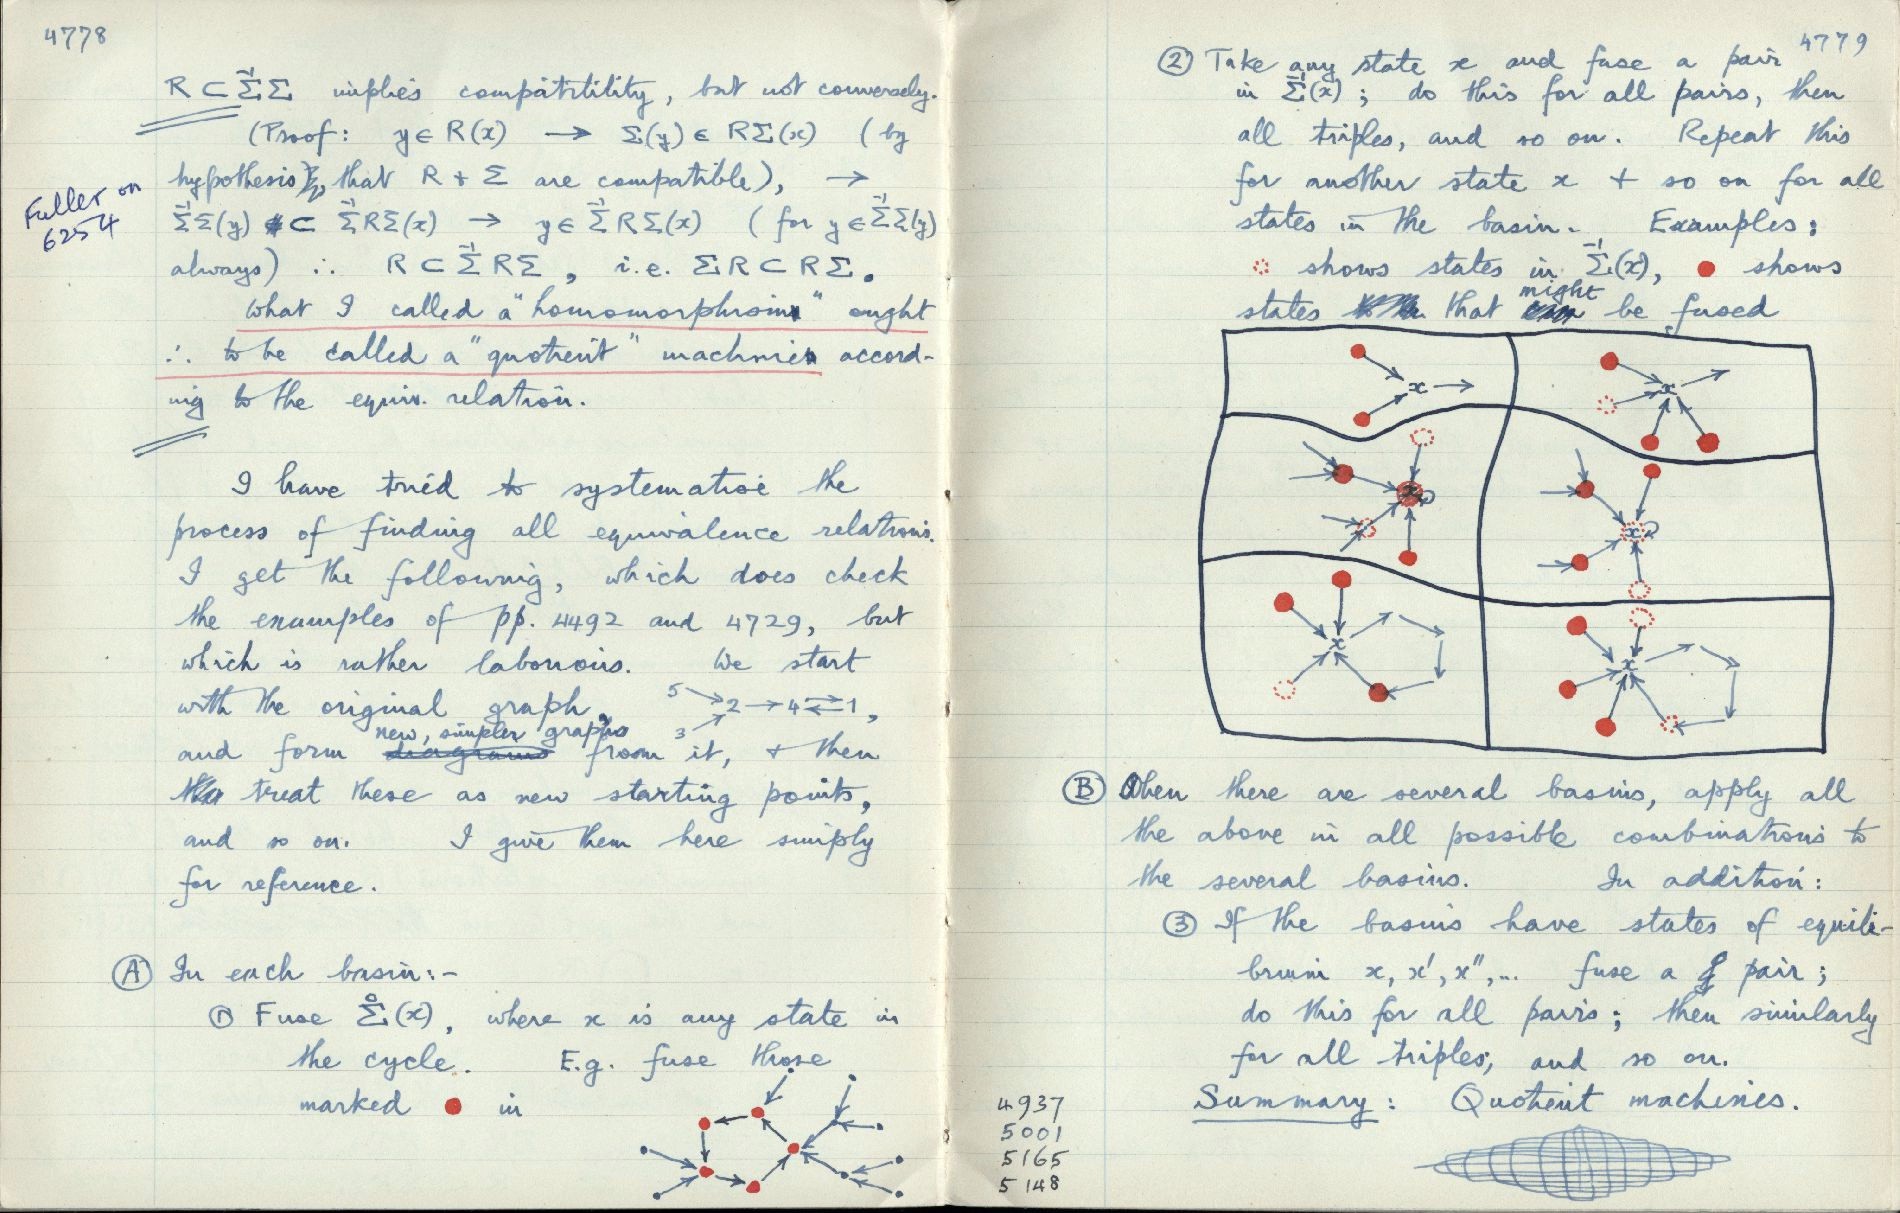 4778
R ⊂ Σ⁻¹Σ implies compatibility, but not conversely.
(Proof: y ∈ R(x) → Σ(y) ∈ RΣ(x) (by
hypothesis, that R + Σ are compatible), →
Σ⁻¹Σ(y) ⊂ Σ⁻¹RΣ(x) → y ∈ Σ⁻¹RΣ(x) (for y ∈ Σ⁻¹Σ(y)
always) ∴ R ⊂ Σ⁻¹RΣ, i.e. ΣR ⊂ RΣ.
Fuller on
6254
What I called a "homomorphism" ought
∴ to be called a "quotient" machine accord-
ing to the equiv. relation.
I have tried to systematise the
process of finding all equivalence relations.
I get the following, which does check
the examples of pp. 4492 and 4729, but
which is rather laborious. We start
with the original graph, 5 3 → 2 → 4 ⇄ 1,
and form new, simpler graphs from it, + then
treat these as new starting points,
and so on. I give them here simply
for reference.
Ⓐ In each basin:-
① Fuse Σ⁰(x), where x is any state in
the cycle. E.g. fuse those
marked ● in
4779
② Take any state x and fuse a pair
in Σ⁻¹(x); do this for all pairs, then
all triples, and so on. Repeat this
for another state x + so on for all
states in the basin. Examples:
◌ shows states in Σ⁻¹(x), ● shows
states that might be fused
x
x
x
x
x
x
Ⓑ When there are several basins, apply all
the above in all possible combinations to
the several basins. In addition:
③ If the basins have states of equili-
brium x, x', x'',... fuse a pair;
do this for all pairs; then similarly
for all triples, and so on.
Summary: Quotient machines.
4937
5001
5165
5148